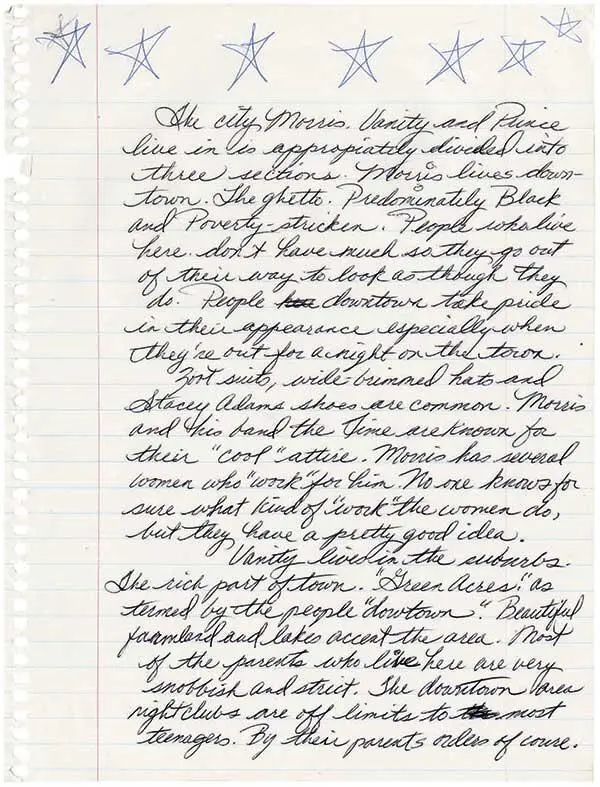 The city Morris, Vanity and Prince
live in is appropiately divided into
three sections. Morris lives down-
town. The ghetto. Predominately Black
and Poverty-stricken. People who live
here don't have much so they go out
of their way to look as though they
do. People downtown take pride
in their appearance especially when
they're out for a night on the town.
Zoot suits, wide-brimmed hats and
Stacey Adams shoes are common. Morris
and his band the Time are known for
their "cool" attire. Morris has several
women who "work" for him. No one knows for
sure what kind of "work" the women do,
but they have a pretty good idea.
Vanity lives in the suburbs.
The rich part of town. "Green Acres", as
termed by the people "dowtown". Beautiful
farmland and lakes accent the area. Most
of the parents who live here are very
snobbish and strict. The downtown area
nightclubs are off limits to most
teenagers. By their parents orders of course.